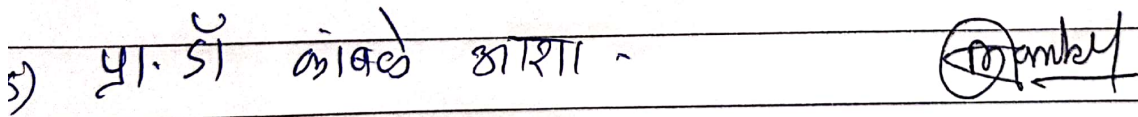 ५) प्रा. डॉ कांबळे आशा -